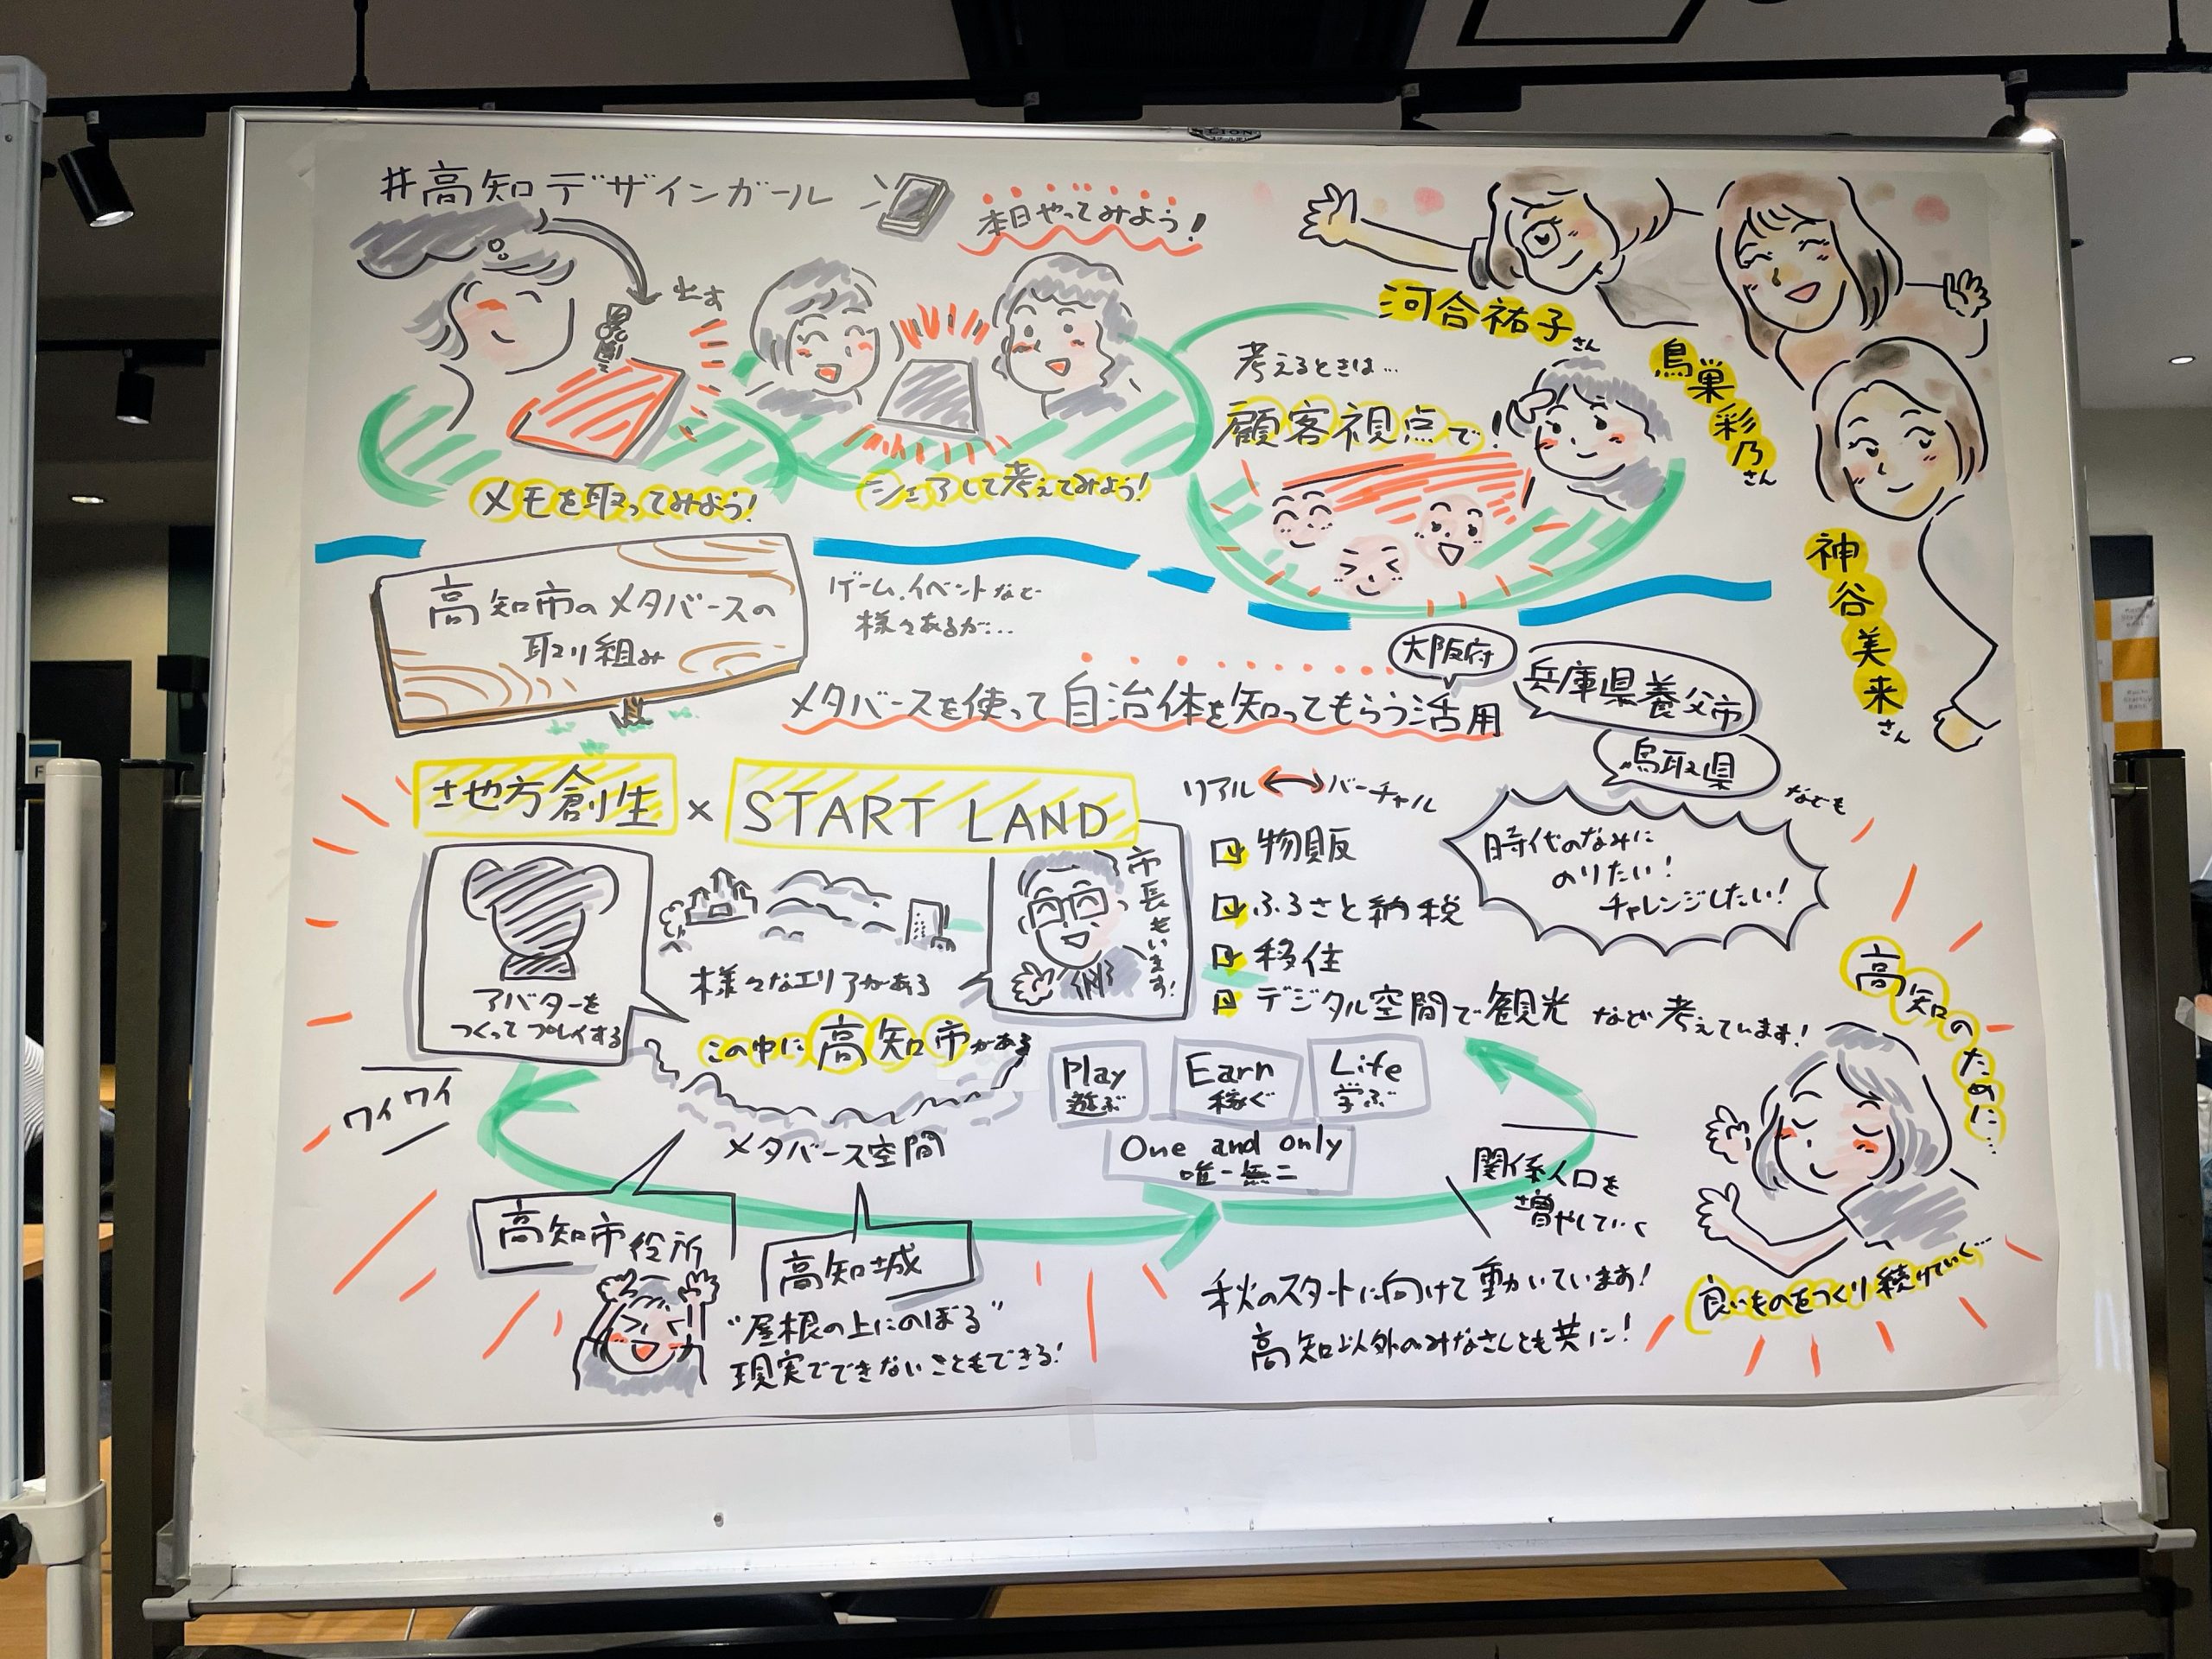 LION
#高知デザインガール
本日やってみよう!
出す
メモを取ってみよう!
シェアして考えてみよう!
考えるときは…
顧客視点で!
河合祐子さん
鳥巣彩乃さん
神谷美来さん
高知市のメタバースの
取り組み
ゲーム、イベントなど
様々あるが…
メタバースを使って自治体を知ってもらう活用
大阪府
兵庫県養父市
鳥取県
なども
地方創生 × START LAND
リアル ↔ バーチャル
物販
ふるさと納税
移住
デジタル空間で観光 など考えています!
時代のなみに
のりたい!
チャレンジしたい!
アバターを
つくってプレイする
様々なエリアがある
市長もいます!
この中に高知市がある
メタバース空間
ワイワイ
Play
遊ぶ
Earn
稼ぐ
Life
学ぶ
One and only
唯一無二
関係人口を
増やしていく
高知市役所
高知城
"屋根の上にのぼる"
現実でできないこともできる!
秋のスタートに向けて動いています!
高知以外のみなさんとも共に!
高知のために…
良いものをつくり続けていく…